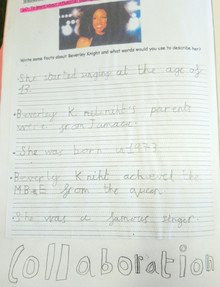 Write some facts about Beverley Knight and what words would you use to describe her?
· She started singing at the age of
13.
· Beverley K. parents
were from Jamaca.
· She was born in 1973.
· Beverly Kniht achieved the
M.B.E from the queen.
· She was a famous singer.
Collaboration